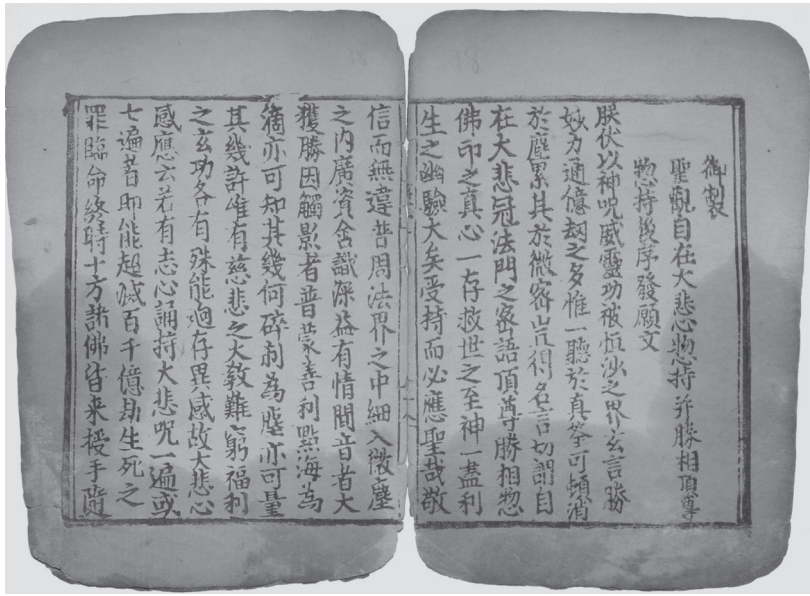 御製
聖觀自在大悲心惣持并勝相頂尊
惣持後序發願文
朕伏以神呪威靈功被恒沙之界玄言勝
妙力通億劫之多惟一聽於真筌可頓消
於塵累其於微密豈得名言切謂自
在大悲冠法門之密語頂尊勝相惣
佛印之真心一存救世之至神一盡利
生之幽驗大矣受持而必應聖哉敬
信而無違普周法界之中細入微塵
之内廣資含識深益有情聞音者大
獲勝因觸影者普蒙善利點海為
滴亦可知其幾何碎剎為塵亦可量
其幾許唯有慈悲之大教難窮福利
之玄功各有殊能迥存異感故大悲心
感應云若有志心誦持大悲呪一遍或
七遍者即能超滅百千億劫生死之
罪臨命終時十方諸佛皆来授手隨